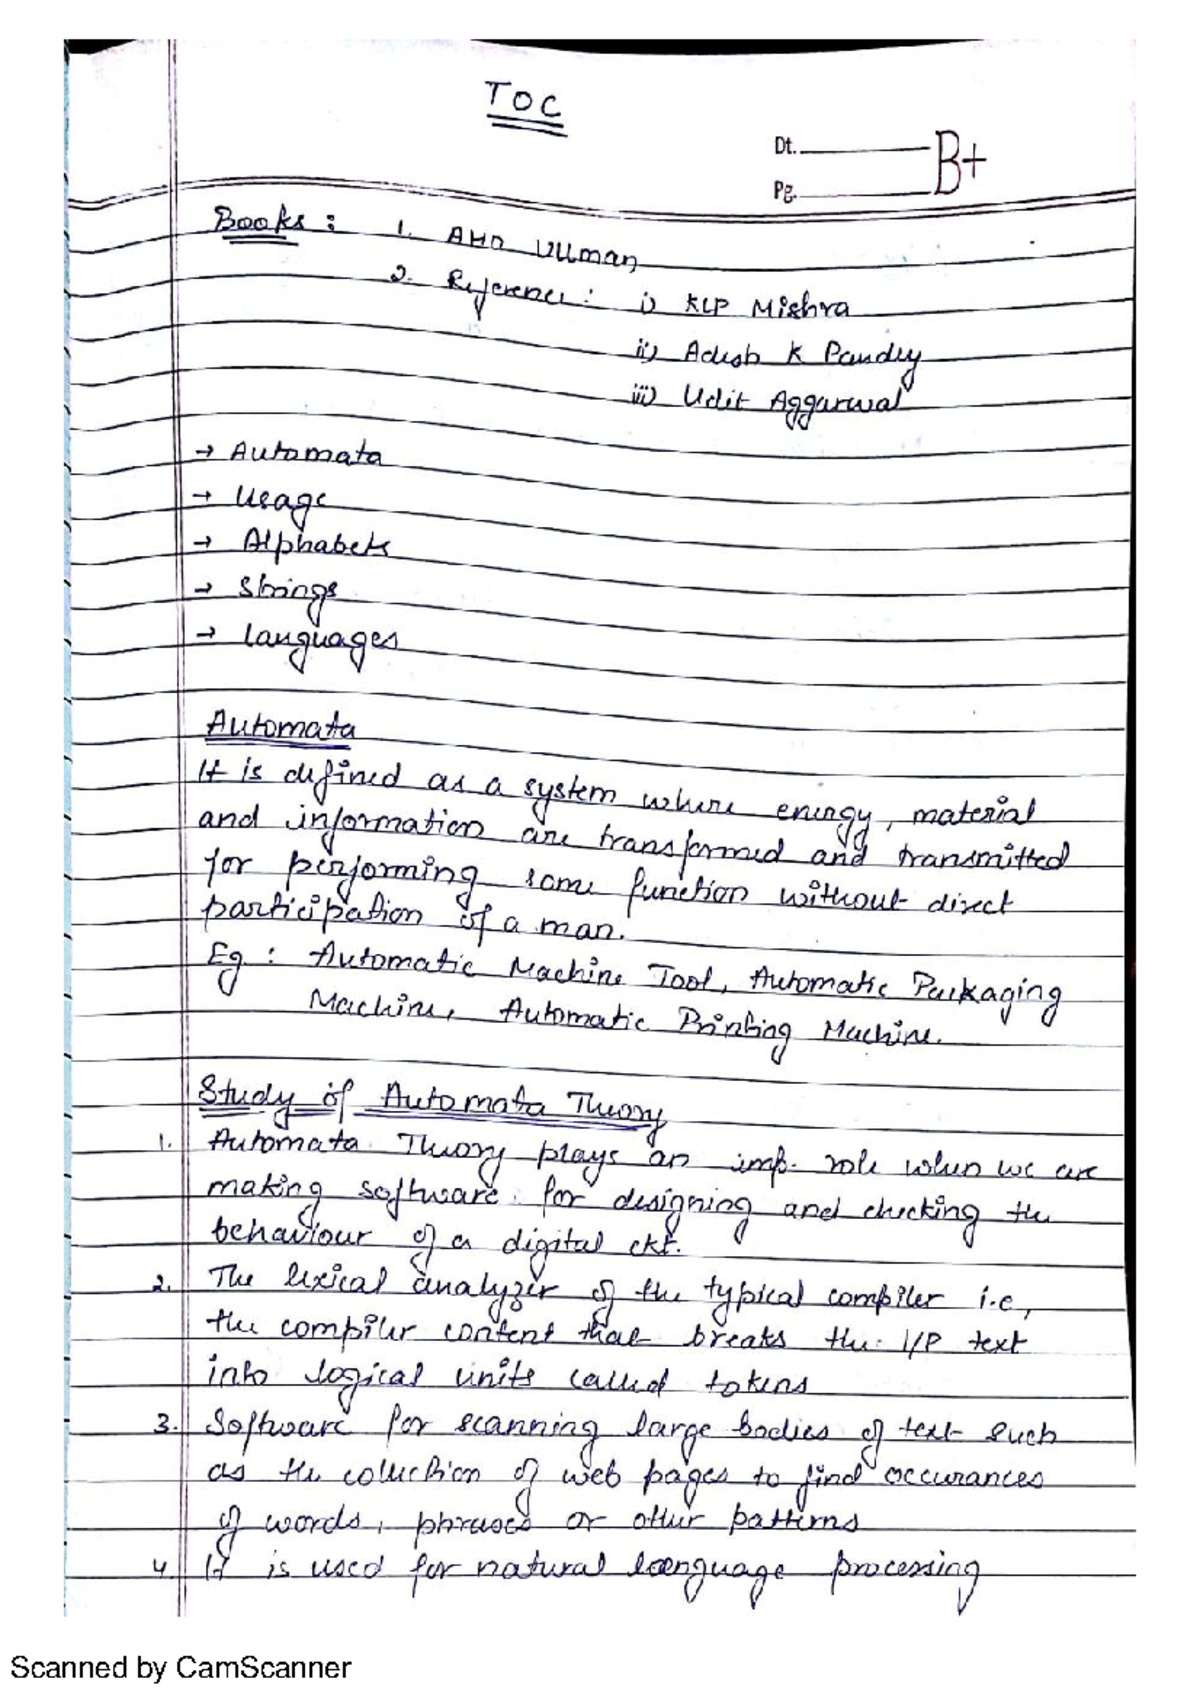 TOC
Dt.
B+
Pg.
Books : 1. AHO Ullman
2. Reference : i) KLP Mishra
ii) Adesh K Pandey
iii) Udit Aggarwal
→ Automata
→ Usage
→ Alphabets
→ Strings
→ Languages
Automata
It is defined as a system where energy, material
and information are transformed and transmitted
for performing some function without direct
participation of a man.
Eg : Automatic Machine Tool, Automatic Packaging
Machine, Automatic Printing Machine.
Study of Automata Theory
1. Automata Theory plays an imp. role when we are
making software for designing and checking the
behaviour of a digital ckt.
2. The lexical analyzer of the typical compiler i.e,
the compiler content that breaks the I/P text
into logical units called tokens
3. Software for scanning large bodies of text such
as the collection of web pages to find occurances
of words, phrases or other patterns
4. It is used for natural language processing
Scanned by CamScanner